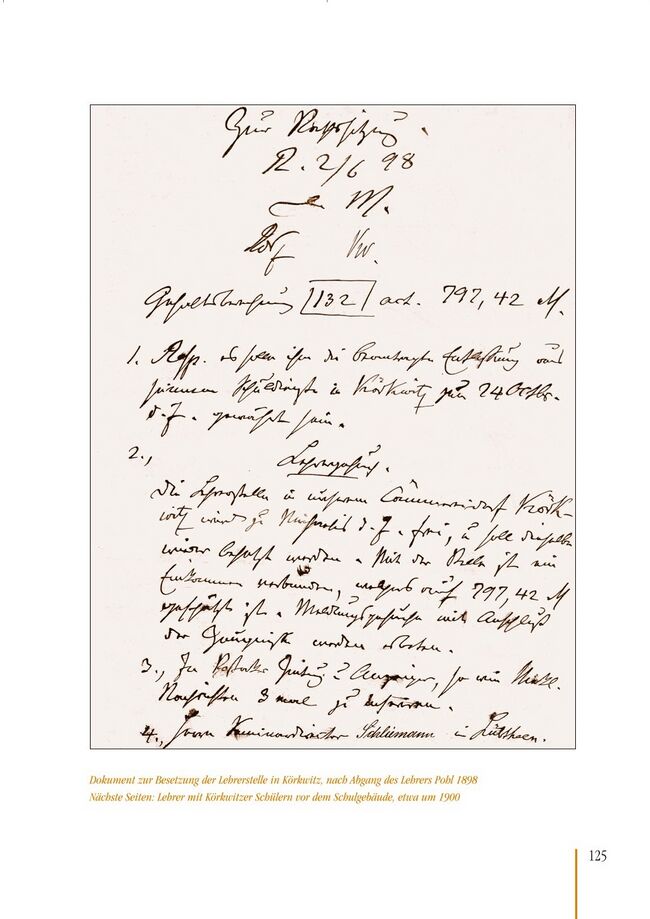 Zur Rathssitzung.
R. 2/6 98
d. M.
Gehaltsbeziehung 132 act. 797,42 M.
1. Resp. es solle ihm die beantragte Entlassung aus
seinem Schuldienste in Körkwitz zum 24 Octbr.
d. J. gewährt sein.
2.,
Lehrergesuch.
Die Lehrerstelle in unserem Cämmereidorf Körk-
witz wird zu Michaelis d. J. frei, u soll dieselbe
wieder besetzt werden. Mit der Stelle ist ein
Einkommen verbunden, welches auf 797,42 M
geschätzt ist. Meldungsgesuche mit Anschluß
der Zeugnisse werden erbeten.
3., In Rostocker Zeitung u Anzeiger, so wie Meckl.
Nachrichten 3 mal zu inseriren.
4., Herrn Seminardirector Schliemann in Lübtheen.
Dokument zur Besetzung der Lehrerstelle in Körkwitz, nach Abgang des Lehrers Pohl 1898
Nächste Seiten: Lehrer mit Körkwitzer Schülern vor dem Schulgebäude, etwa um 1900
125